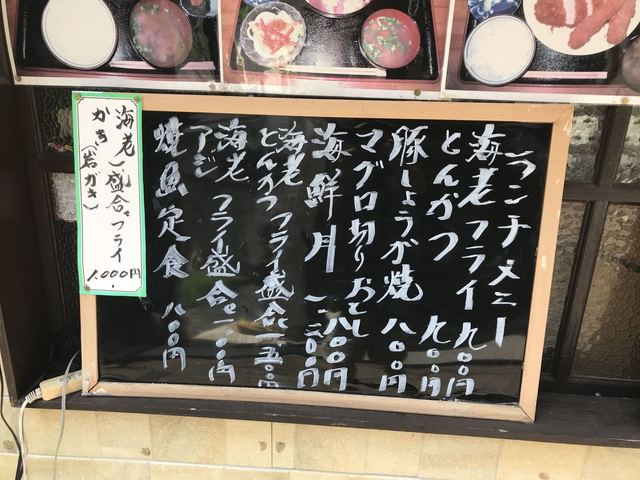 ランチメニュー
海老フライ 九〇〇円
とんかつ 九〇〇円
豚しょうが焼 八〇〇円
マグロ切りおとし 八〇〇円
海鮮丼 一、二〇〇円
海老とんかつ フライ盛合せ 一一五〇円
海老アジ フライ盛合せ 一一〇〇円
焼魚定食 八〇〇円
海老かき 盛合せフライ
(岩がき)
1,000円